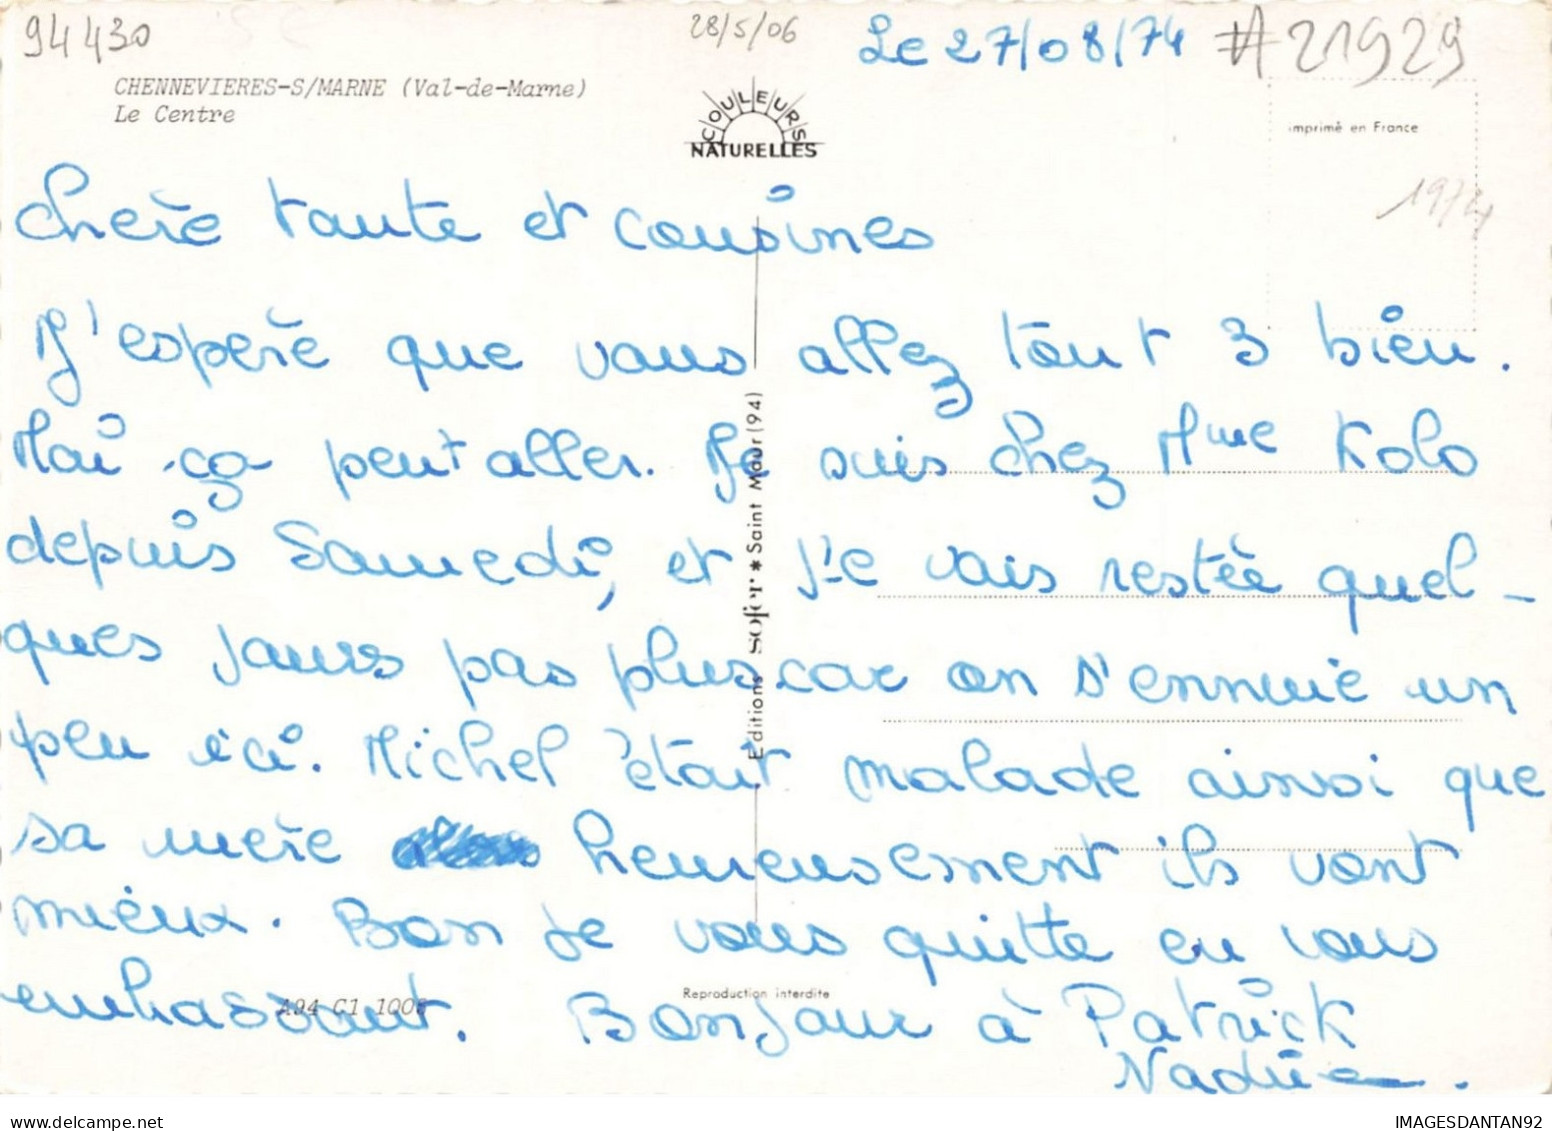 94430
28/5/06
Le 27/08/74
#21929
CHENNEVIERES-S/MARNE (Val-de-Marne)
Le Centre
COULEURS
NATURELLES
imprimé en France
1974
Chère tante et cousines
J'espère que vous allez tout 3 bien.
Moi ça peut aller. Je suis chez Mme Kolo
depuis Samedi, et je vais restée quel-
ques jours pas plus car on s'ennuie un
peu ici. Michel était malade ainsi que
sa mère heureusement ils vont
mieux. Bon je vous quitte en vous
embrassant. Bonjour à Patrick
Nadine.
Editions sofer * Saint Maur (94)
A94 C1 1008
Reproduction interdite
IMAGESDANTAN92